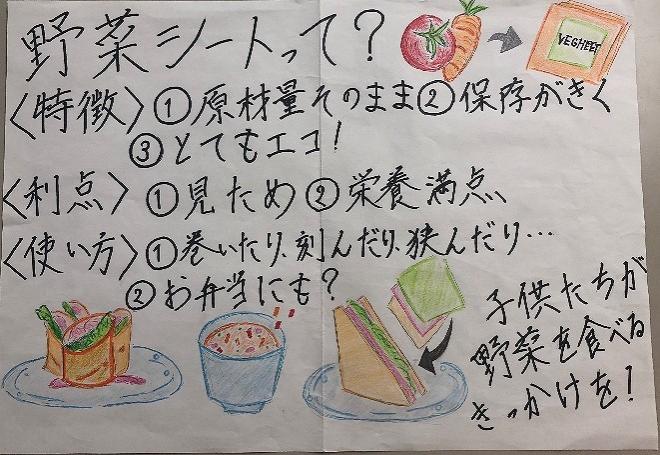 野菜シートって?
VEGHEET
〈特徴〉①原材量そのまま②保存がきく
③とてもエコ!
〈利点〉①見ため②栄養満点、
〈使い方〉①巻いたり、刻んだり、狭んだり…
②お弁当にも?
子供たちが
野菜を食べる
きっかけを!